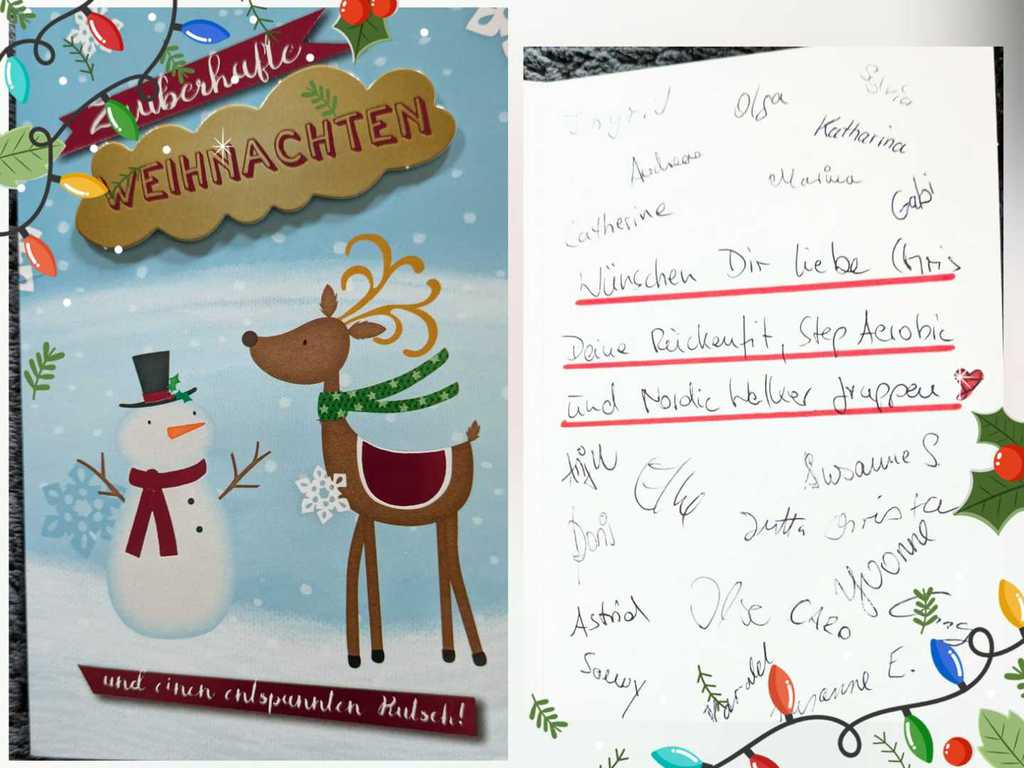 Zauberhafte
WEIHNACHTEN
und einen entspannten Rutsch!
Ingrid Olga Sylvia
Katharina
Andrea Marina
Catherine Gabi
Wünschen Dir liebe Chris
Deine Rückenfit, Step Aerobic
und Nordic Walker Gruppen
Elke Susanne S.
Doris Jutta Christa
Yvonne
Astrid Ilse CARO
Harald
Susanne E.